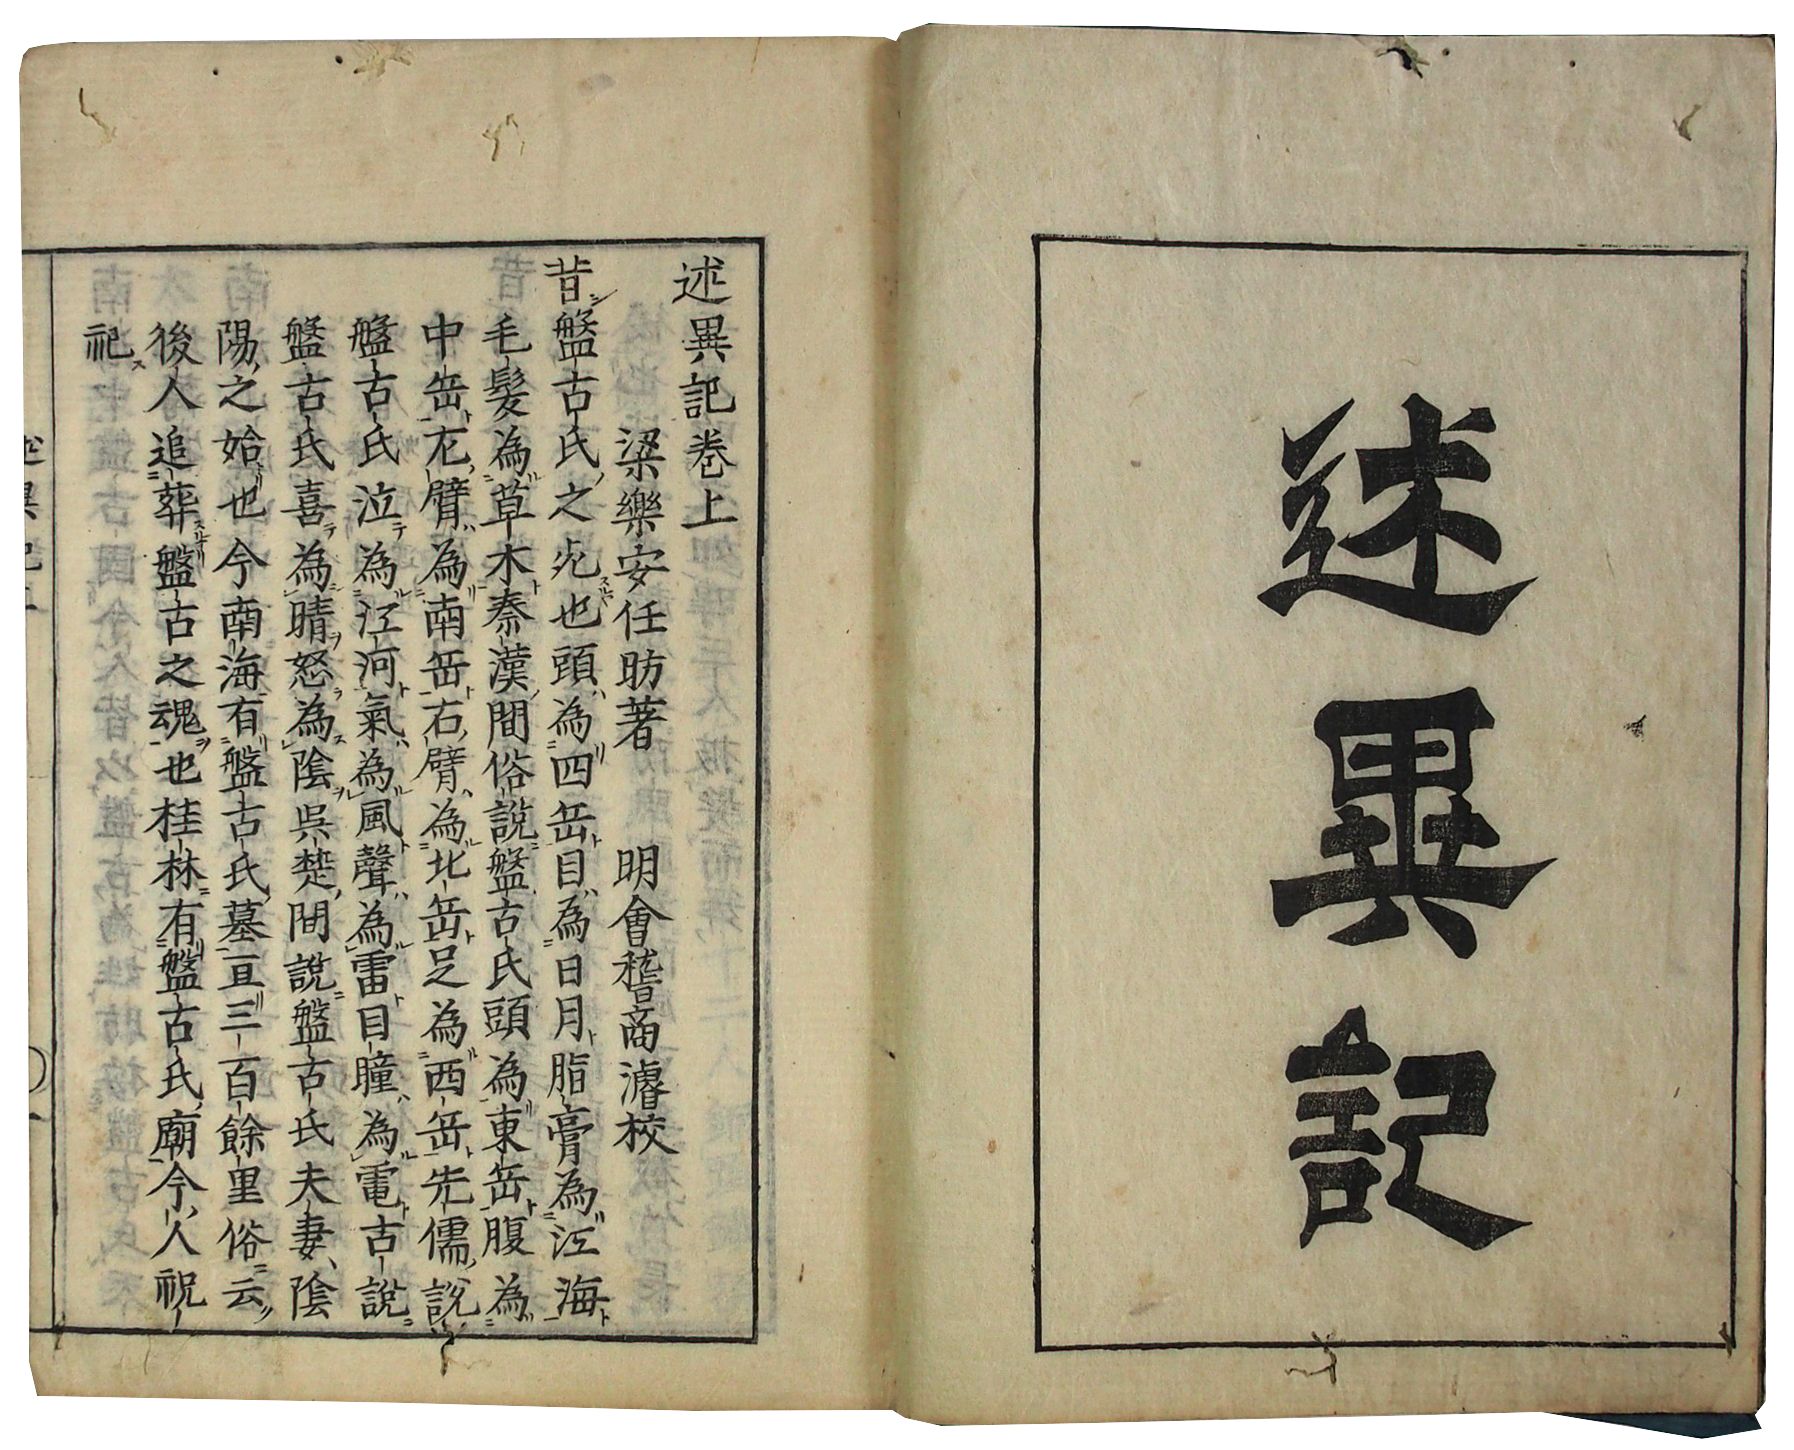 述異記
述異記卷上
梁樂安任昉著　明會稽商濬校
昔盤古氏之死也頭為四岳目為日月脂膏為江海
毛髮為草木秦漢間俗說盤古氏頭為東岳腹為
中岳左臂為南岳右臂為北岳足為西岳先儒說
盤古氏泣為江河氣為風聲為雷目瞳為電古說
盤古氏喜為晴怒為陰吳楚間說盤古氏夫妻陰
陽之始也今南海有盤古氏墓亘三百餘里俗云
後人追葬盤古之魂也桂林有盤古氏廟今人祝
祀